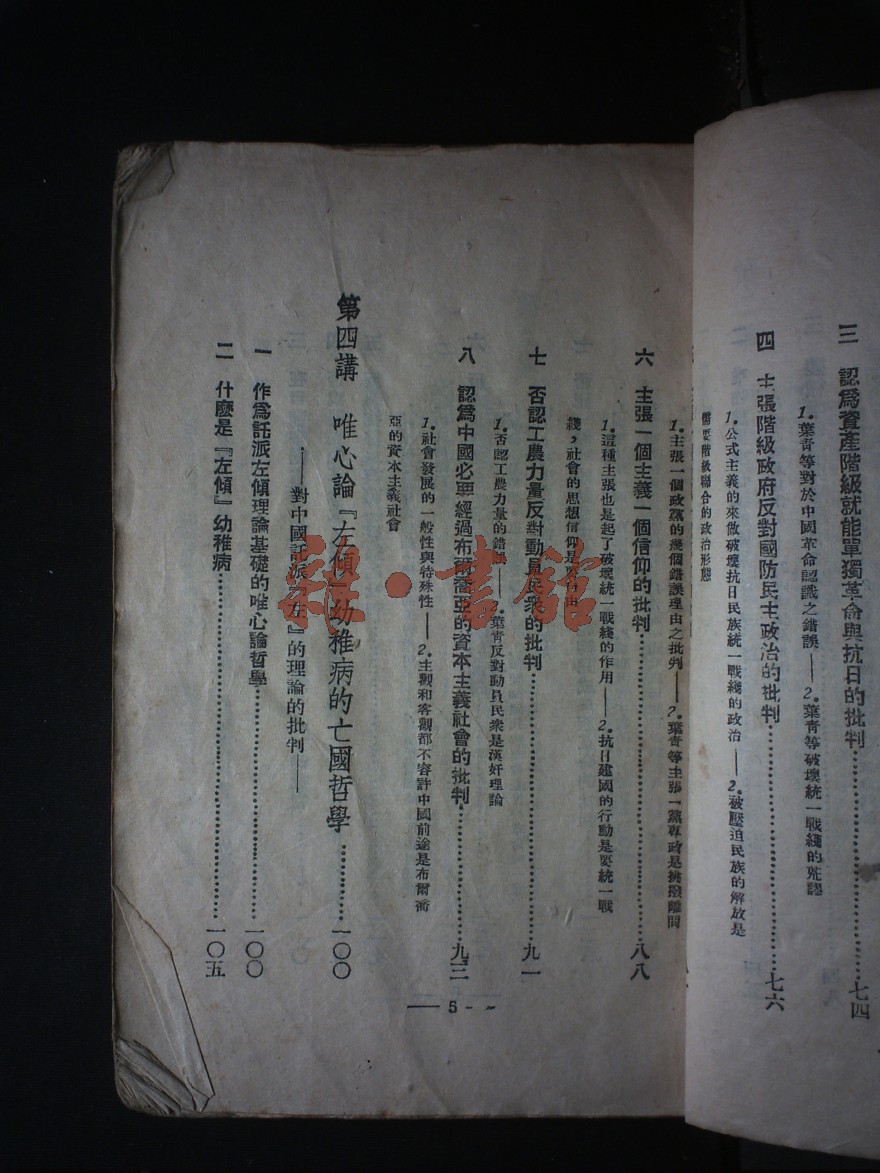 三 認爲資產階級就能單獨革命與抗日的批判…………七四
1.葉青等對於中國革命認識之錯誤——2.葉青等破壞統一戰綫的荒謬
四 主張階級政府反對國防民主政治的批判…………七六
1.公式主義的來做破壞抗日民族統一戰綫的政治——2.被壓迫民族的解放是
需要階級聯合的政治形態
1.主張一個政黨的幾個錯誤理由之批判——2.葉青等主張一黨專政是挑撥離間
六 主張一個主義一個信仰的批判…………八八
1.這種主張也是起了破壞統一戰綫的作用——2.抗日建國的行動是要統一戰
綫,社會的思想信仰是要自由
七 否認工農力量反對動員民衆的批判…………九一
1.否認工農力量的錯誤——2.葉青反對動員民衆是漢奸理論
八 認爲中國必單經過布爾喬亞的資本主義社會的批判…………九三
1.社會發展的一般性與特殊性——2.主觀和客觀都不容許中國前途是布爾喬
亞的資本主義社會
第四講 唯心論『左傾』幼稚病的亡國哲學…………一〇〇
——對中國託派『左』的理論的批判——
一 作爲託派左傾理論基礎的唯心論哲學…………一〇〇
二 什麽是『左傾』幼稚病…………一〇五
— 5 -
雜·書館